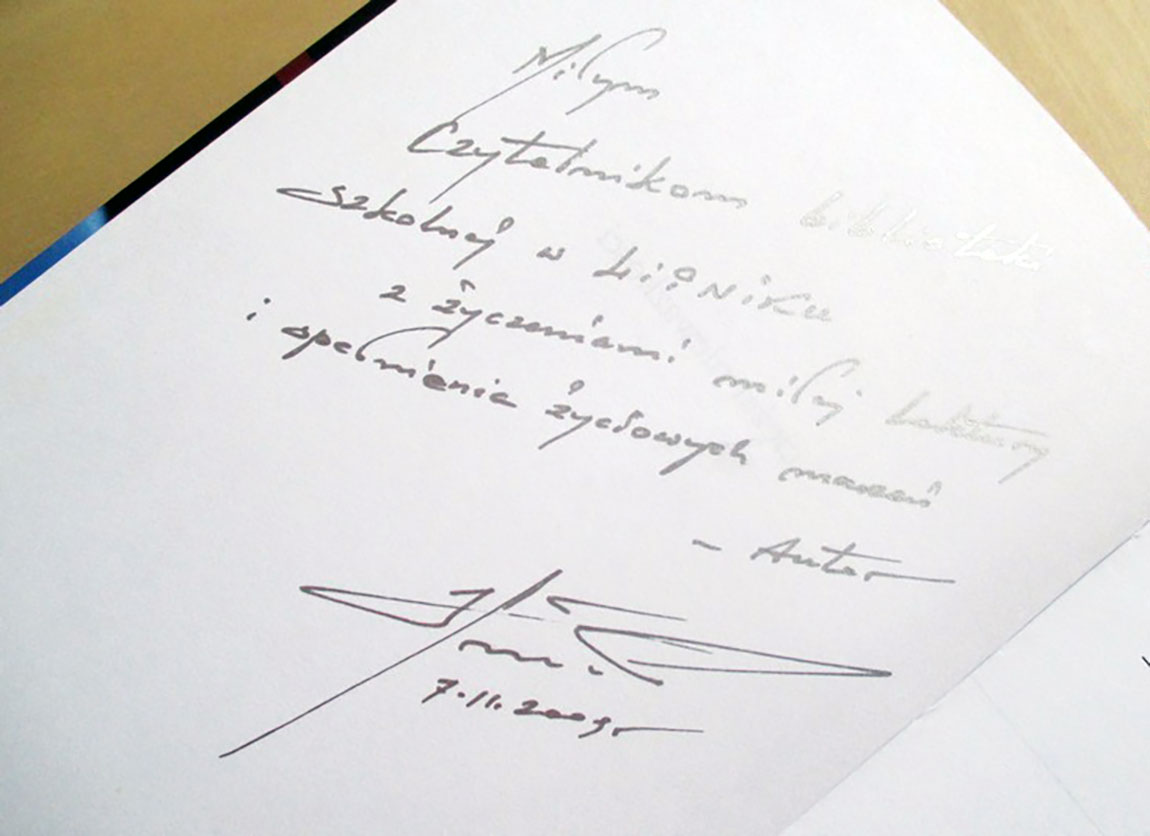 Miłym
Czytelnikom biblioteki
szkolnej w Lipniku
z życzeniami miłej lektury
i spełnienia życiowych marzeń
- Autor
7.11.2009r